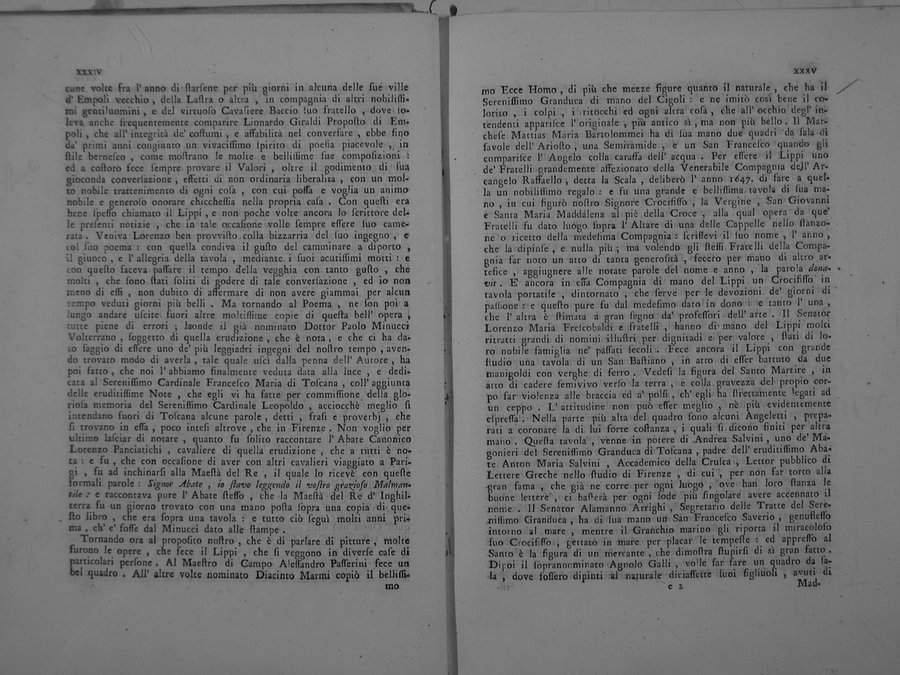 XXXIV
cune volte fra l' anno di ſtarſene per più giorni in alcuna delle ſue ville
d' Empoli vecchio, della Laſtra o altra, in compagnia di altri nobiliſſi-
mi gentiluomini, e del virtuoſo Cavaliere Baccio ſuo fratello, dove ſo-
leva anche frequentemente comparire Lionardo Giraldi Propoſto di Em-
poli, che all' integrità de' coſtumi, e affabilità nel converſare, ebbe fino
da' primi anni congiunto un vivaciſſimo ſpirito di poeſia piacevole, in
ſtile berneſco, come moſtrano le molte e belliſſime ſue compoſizioni:
ed a coſtoro fece ſempre provare il Valori, oltre il godimento di ſua
gioconda converſazione, effetti di non ordinaria liberaliſà, con un mol-
to nobile trattenimento di ogni coſa, con cui poſſa e voglia un animo
nobile e generoſo onorare chiccheſſia nella propria caſa. Con queſti era
bene ſpeſſo chiamato il Lippi, e non poche volte ancora lo ſcrittore del-
le preſenti notizie, che in tale occaſione volle ſempre eſſere ſuo came-
rata. Veniva Lorenzo ben provviſto colla bizzarria del ſuo ingegno, e
col ſuo poema: con quella condiva il guſto del camminare a diporto,
il giuoco, e l' allegria della tavola, mediante i ſuoi acutiſſimi motti: e
con queſto faceva paſſare il tempo della vegghia con tanto guſto, che
molti, che ſono ſtati ſoliti di godere di tale converſazione, ed io non
meno di eſſi, non dubito di affermare di non avere giammai per alcun
tempo veduti giorni più belli. Ma tornando al Poema, ne ſon poi a
lungo andare uſcite fuori altre moltiſſime copie di queſta bell' opera,
tutte piene di errori; laonde il già nominato Dottor Paolo Minucci
Volterrano, ſoggetto di quella erudizione, che è nota, e che ci ha da-
to ſaggio di eſſere uno de' più leggiadri ingegni del noſtro tempo, aven-
do trovato modo di averla, tale quale uſcì dalla penna dell' Autore, ha
poi fatto, che noi l' abbiamo finalmente veduta data alla luce, e dedi-
cata al Sereniſſimo Cardinale Franceſco Maria di Toſcana, coll' aggiunta
delle eruditiſſime Note, che egli vi ha fatte per commiſſione della glo-
rioſa memoria del Sereniſſimo Cardinale Leopoldo, acciocchè meglio ſi
intendano fuori di Toſcana alcune parole, detti, fraſi e proverbj, che
ſi trovano in eſſa, poco inteſi altrove, che in Firenze. Non voglio per
ultimo laſciar di notare, quanto fu ſolito raccontare l' Abate Canonico
Lorenzo Panciatichi, cavaliere di quella erudizione, che a tutti è no-
ta: e fu, che con occaſione di aver con altri cavalieri viaggiato a Pari-
gi, fu ad inchinarſi alla Maeſtà del Re, il quale lo ricevè con queſte
formali parole: Signor Abate, io ſtavo leggendo il voſtro grazioſo Malman-
tile: e raccontava pure l' Abate ſteſſo, che la Maeſtà del Re d' Inghil-
terra fu un giorno trovato con una mano poſta ſopra una copia di que-
ſto libro, che era ſopra una tavola: e tutto ciò ſeguì molti anni pri-
ma, ch' e' foſſe dal Minucci dato alle ſtampe.
Tornando ora al propoſito noſtro, che è di parlare di pitture, molte
furono le opere, che fece il Lippi, che ſi veggono in diverſe caſe di
particolari perſone. Al Maeſtro di Campo Aleſſandro Paſſerini fece un
bel quadro. All' altre volte nominato Diacinto Marmi copiò il belliſſi-
mo
XXXV
mo Ecce Homo, di più che mezze figure quanto il naturale, che ha il
Sereniſſimo Granduca di mano del Cigoli: e ne imitò così bene il co-
lorito, i colpi, i ritocchi ed ogni altra coſa, che all' occhio degl' in-
tendenti appariſce l' originale, più antico sì, ma non più bello. Il Mar-
cheſe Mattias Maria Bartolommei ha di ſua mano due quadri da ſala di
favole dell' Arioſto, una Semiramide, e un San Franceſco quando gli
compariſce l' Angelo colla caraffa dell' acqua. Per eſſere il Lippi uno
de' Fratelli grandemente affezionato della Venerabile Compagnia dell' Ar-
cangelo Raffaello, detta la Scala, deliberò l' anno 1647. di fare a quel-
la un nobiliſſimo regalo: e fu una grande e belliſſima tavola di ſua ma-
no, in cui figurò noſtro Signore Crocifiſſo, la Vergine, San Giovanni
e Santa Maria Maddalena al piè della Croce, alla qual opera da que'
Fratelli fu dato luogo ſopra l' Altare di una delle Cappelle nello ſtanzo-
ne o ricetto della medeſima Compagnia: ſcriſſevi il ſuo nome, l' anno,
che la dipinſe, e nulla più; ma volendo gli ſteſſi Fratelli della Compa-
gnia far noto un atto di tanta generoſità, fecero per mano di altro ar-
tefice, aggiugnere alle notate parole del nome e anno, la parola dona-
vit. E' ancora in eſſa Compagnia di mano del Lippi un Crocifiſſo in
tavola portatile, dintornato, che ſerve per le devozioni de' giorni di
paſſione: e queſto pure fu dal medeſimo dato in dono: e tanto l' una,
che l' altra è ſtimata a gran ſegno da' profeſſori dell' arte. Il Senator
Lorenzo Maria Freſcobaldi e fratelli, hanno di mano del Lippi molti
ritratti grandi di nomini illuſtri per dignitadi e per valore, ſtati di lo-
ro nobile famiglia ne' paſſati ſecoli. Fece ancora il Lippi con grande
ſtudio una tavola di un San Baſtiano, in atto di eſſer battuto da due
manigoldi con verghe di ferro. Vedeſi la figura del Santo Martire, in
atto di cadere ſemivivo verſo la terra, e colla gravezza del propio cor-
po far violenza alle braccia ed a' polſi, ch' egli ha ſtrettamente legati ad
un ceppo. L' attitudine non può eſſer meglio, nè più evidentemente
eſpreſſa. Nella parte più alta del quadro ſono alcuni Angeletti, prepa-
rati a coronare la di lui forte coſtanza, i quali ſi dicono finiti per altra
mano. Queſta tavola, venne in potere di Andrea Salvini, uno de' Ma-
gonieri del Sereniſſimo Granduca di Toſcana, padre dell' eruditiſſimo Aba-
te Anton Maria Salvini, Accademico della Cruſca, Lettor pubblico di
Lettere Greche nello ſtudio di Firenze, di cui, per non far torto alla
gran fama, che già ne corre per ogni luogo, ove han loro ſtanza le
buone lettere, ci baſterà per ogni lode più ſingolare avere accennato il
nome. Il Senator Alamanno Arrighi, Segretario delle Tratte del Sere-
niſſimo Granduca, ha di ſua mano un San Franceſco Saverio, genufleſſo
intorno al mare, mentre il Granchio marino gli riporta il miracoloſo
ſuo Crocifiſſo, gettato in mare per placar le tempeſte: ed appreſſo al
Santo è la figura di un mercante, che dimoſtra ſtupirſi di sì gran fatto.
Dipoi il ſoprannominato Agnolo Galli, volle far fare un quadro da ſa-
la, dove foſſero dipinti al naturale diciaſſette ſuoi figliuoli, avuti di
e 2
Mad-